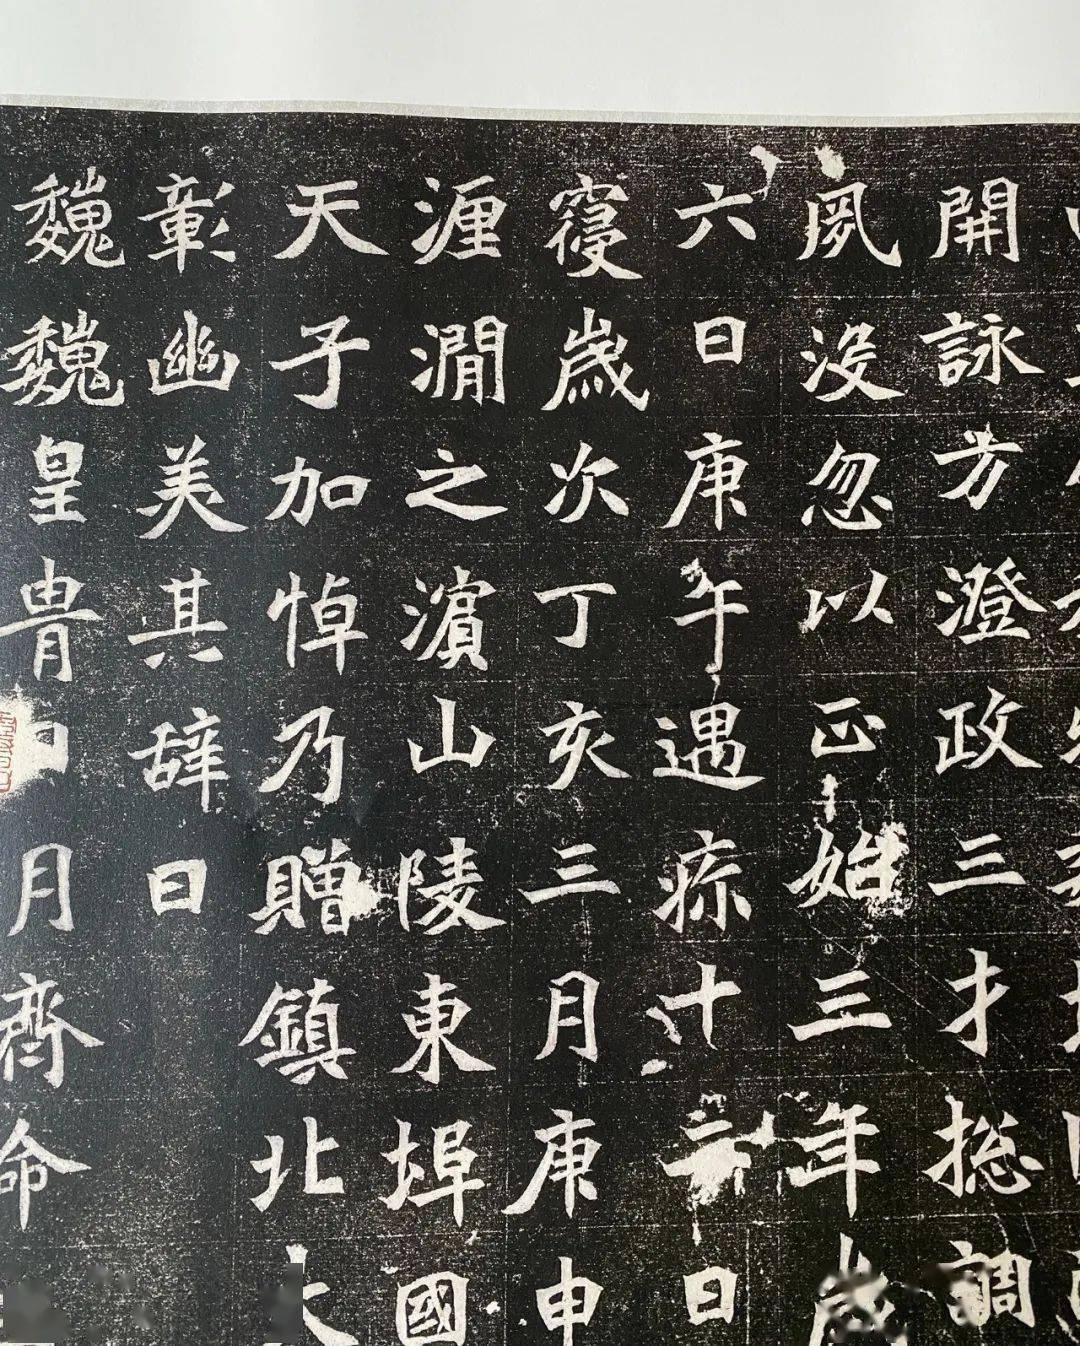 開詠方澄政三才揔調
夙没忽以正始三年歲
六日庚午遇疹十二日
窆歲次丁亥三月庚申
瀍澗之濵山陵東埠國
天子加悼乃贈鎮北大
彰幽美其辞曰
巍巍皇胄日月齊命